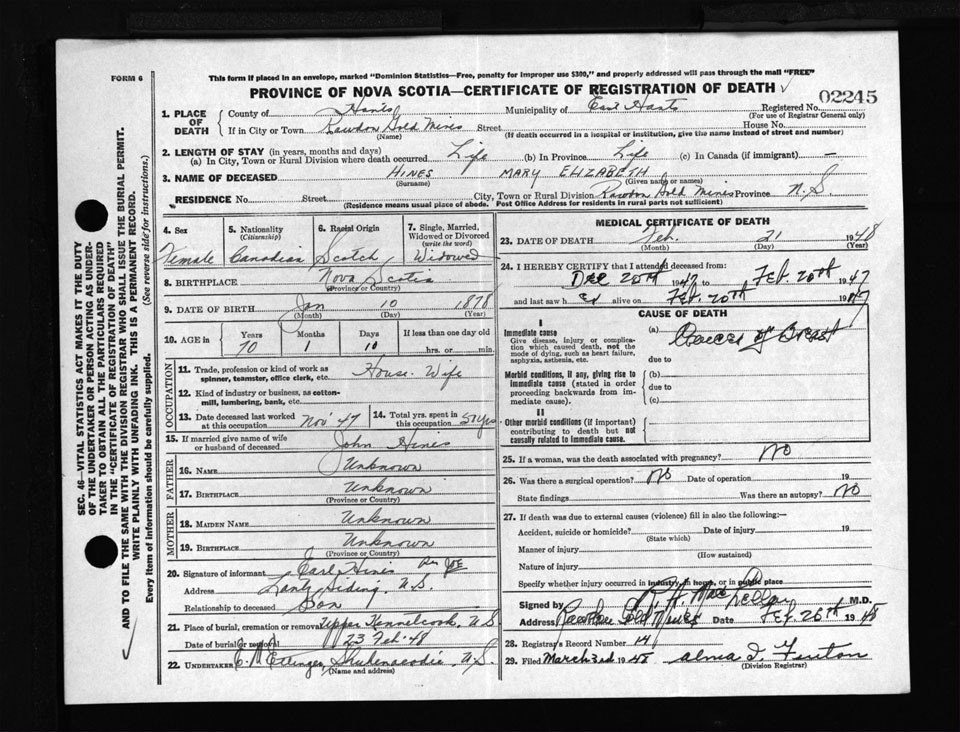 FORM 6
This form if placed in an envelope, marked "Dominion Statistics—Free, penalty for improper use $300," and properly addressed will pass through the mail "FREE"
PROVINCE OF NOVA SCOTIA—CERTIFICATE OF REGISTRATION OF DEATH
02245
1. PLACE OF DEATH
County of Hants Municipality of East Hants Registered No.
(For use of Registrar General only)
If in City or Town Rawdon Gold Mines Street House No.
(Name) (If death occurred in a hospital or institution, give the name instead of street and number)
2. LENGTH OF STAY (in years, months and days)
(a) In City, Town or Rural Division where death occurred Life (b) In Province Life (c) In Canada (if immigrant) —
3. NAME OF DECEASED HINES MARY ELIZABETH
(Surname) (Given name or names)
RESIDENCE No. Street City, Town or Rural Division Rawdon Gold Mines Province N.S.
(Residence means usual place of abode. Post Office Address for residents in rural parts not sufficient)
4. Sex 5. Nationality (Citizenship) 6. Racial Origin 7. Single, Married, Widowed or Divorced (write the word)
Female Canadian Scotch Widowed
8. BIRTHPLACE Nova Scotia
(Province or Country)
9. DATE OF BIRTH Jan 10 1878
(Month) (Day) (Year)
10. AGE in Years Months Days If less than one day old
70 1 10 hrs. or min.
OCCUPATION
11. Trade, profession or kind of work as spinner, teamster, office clerk, etc. House-Wife
12. Kind of industry or business, as cotton-mill, lumbering, bank, etc.
13. Date deceased last worked at this occupation Nov 47
14. Total yrs. spent in this occupation 50 yrs.
15. If married give name of wife or husband of deceased John Hines
FATHER
16. Name Unknown
17. Birthplace Unknown
(Province or Country)
MOTHER
18. Maiden Name Unknown
19. Birthplace Unknown
(Province or Country)
20. Signature of informant Earl Hines Per JOE
Address Lantz Siding, N.S.
Relationship to deceased Son
21. Place of burial, cremation or removal Upper Kennetcook, N.S.
Date of burial or removal 23 Feb. 48
22. UNDERTAKER Ettinger, Shubenacadie, N.S.
(Name and address)
MEDICAL CERTIFICATE OF DEATH
23. DATE OF DEATH Feb. 21 1948
(Month) (Day) (Year)
24. I HEREBY CERTIFY that I attended deceased from:
Dec 20th 1947 to Feb. 20th 1947
and last saw h er alive on Feb. 20th 1947
CAUSE OF DEATH
I
Immediate cause
Give disease, injury or complication which caused death, not the mode of dying, such as heart failure, asphyxia, asthenia, etc.
(a) Cancer of Breast
due to
Morbid conditions, if any, giving rise to immediate cause (stated in order proceeding backwards from immediate cause).
(b)
due to
(c)
II
Other morbid conditions (if important) contributing to death but not causally related to immediate cause.
25. If a woman, was the death associated with pregnancy? No
26. Was there a surgical operation? No Date of operation 19
State findings Was there an autopsy? No
27. If death was due to external causes (violence) fill in also the following:—
Accident, suicide or homicide? Date of injury 19
(State which)
Manner of injury
(How sustained)
Nature of injury
Specify whether injury occurred in industry, in home, or in public place
Signed by MacLellan M.D.
Address Rawdon Gold Mines Date Feb. 26th 1948
28. Registrar's Record Number 14
29. Filed March 3rd 1948 Alma I. Fenton
(Division Registrar)
SEC. 46—VITAL STATISTICS ACT MAKES IT THE DUTY
OF THE UNDERTAKER OR PERSON ACTING AS UNDER-
TAKER TO OBTAIN ALL THE PARTICULARS REQUIRED
IN THE "CERTIFICATE OF REGISTRATION OF DEATH"
AND TO FILE THE SAME WITH THE DIVISION REGISTRAR WHO SHALL ISSUE THE BURIAL PERMIT.
WRITE PLAINLY WITH UNFADING INK. THIS IS A PERMANENT RECORD.
Every item of information should be carefully supplied. (See reverse side for instructions.)